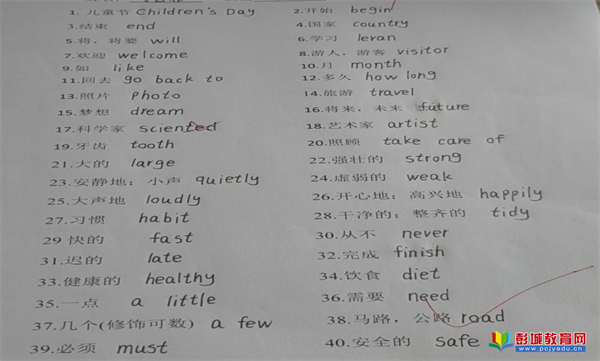 1. 儿童节 Children's Day 2.开始 begin
3.结束 end 4.国家 country
5.将，将要 will 6.学习 leran
7.欢迎 welcome 8.游人，游客 visitor
9.如 like 10.月 month
11.回去 go back to 12.多久 how long
13.照片 photo 14.旅游 travel
15.梦想 dream 16.将来，未来 future
17.科学家 sciented 18.艺术家 artist
19.牙齿 tooth 20.照顾 take care of
21.大的 large 22.强壮的 strong
23.安静地；小声 quietly 24.虚弱的 weak
25.大声地 loudly 26.开心地；高兴地 happily
27.习惯 habit 28.干净的；整齐的 tidy
29 快的 fast 30.从不 never
31.迟的 late 32.完成 finish
33.健康的 healthy 34.饮食 diet
35.一点 a little 36.需要 need
37.几个(修饰可数) a few 38.马路，公路 road
39.必须 must 40.安全的 safe
彭城教育网
www.pcjyedu.cn